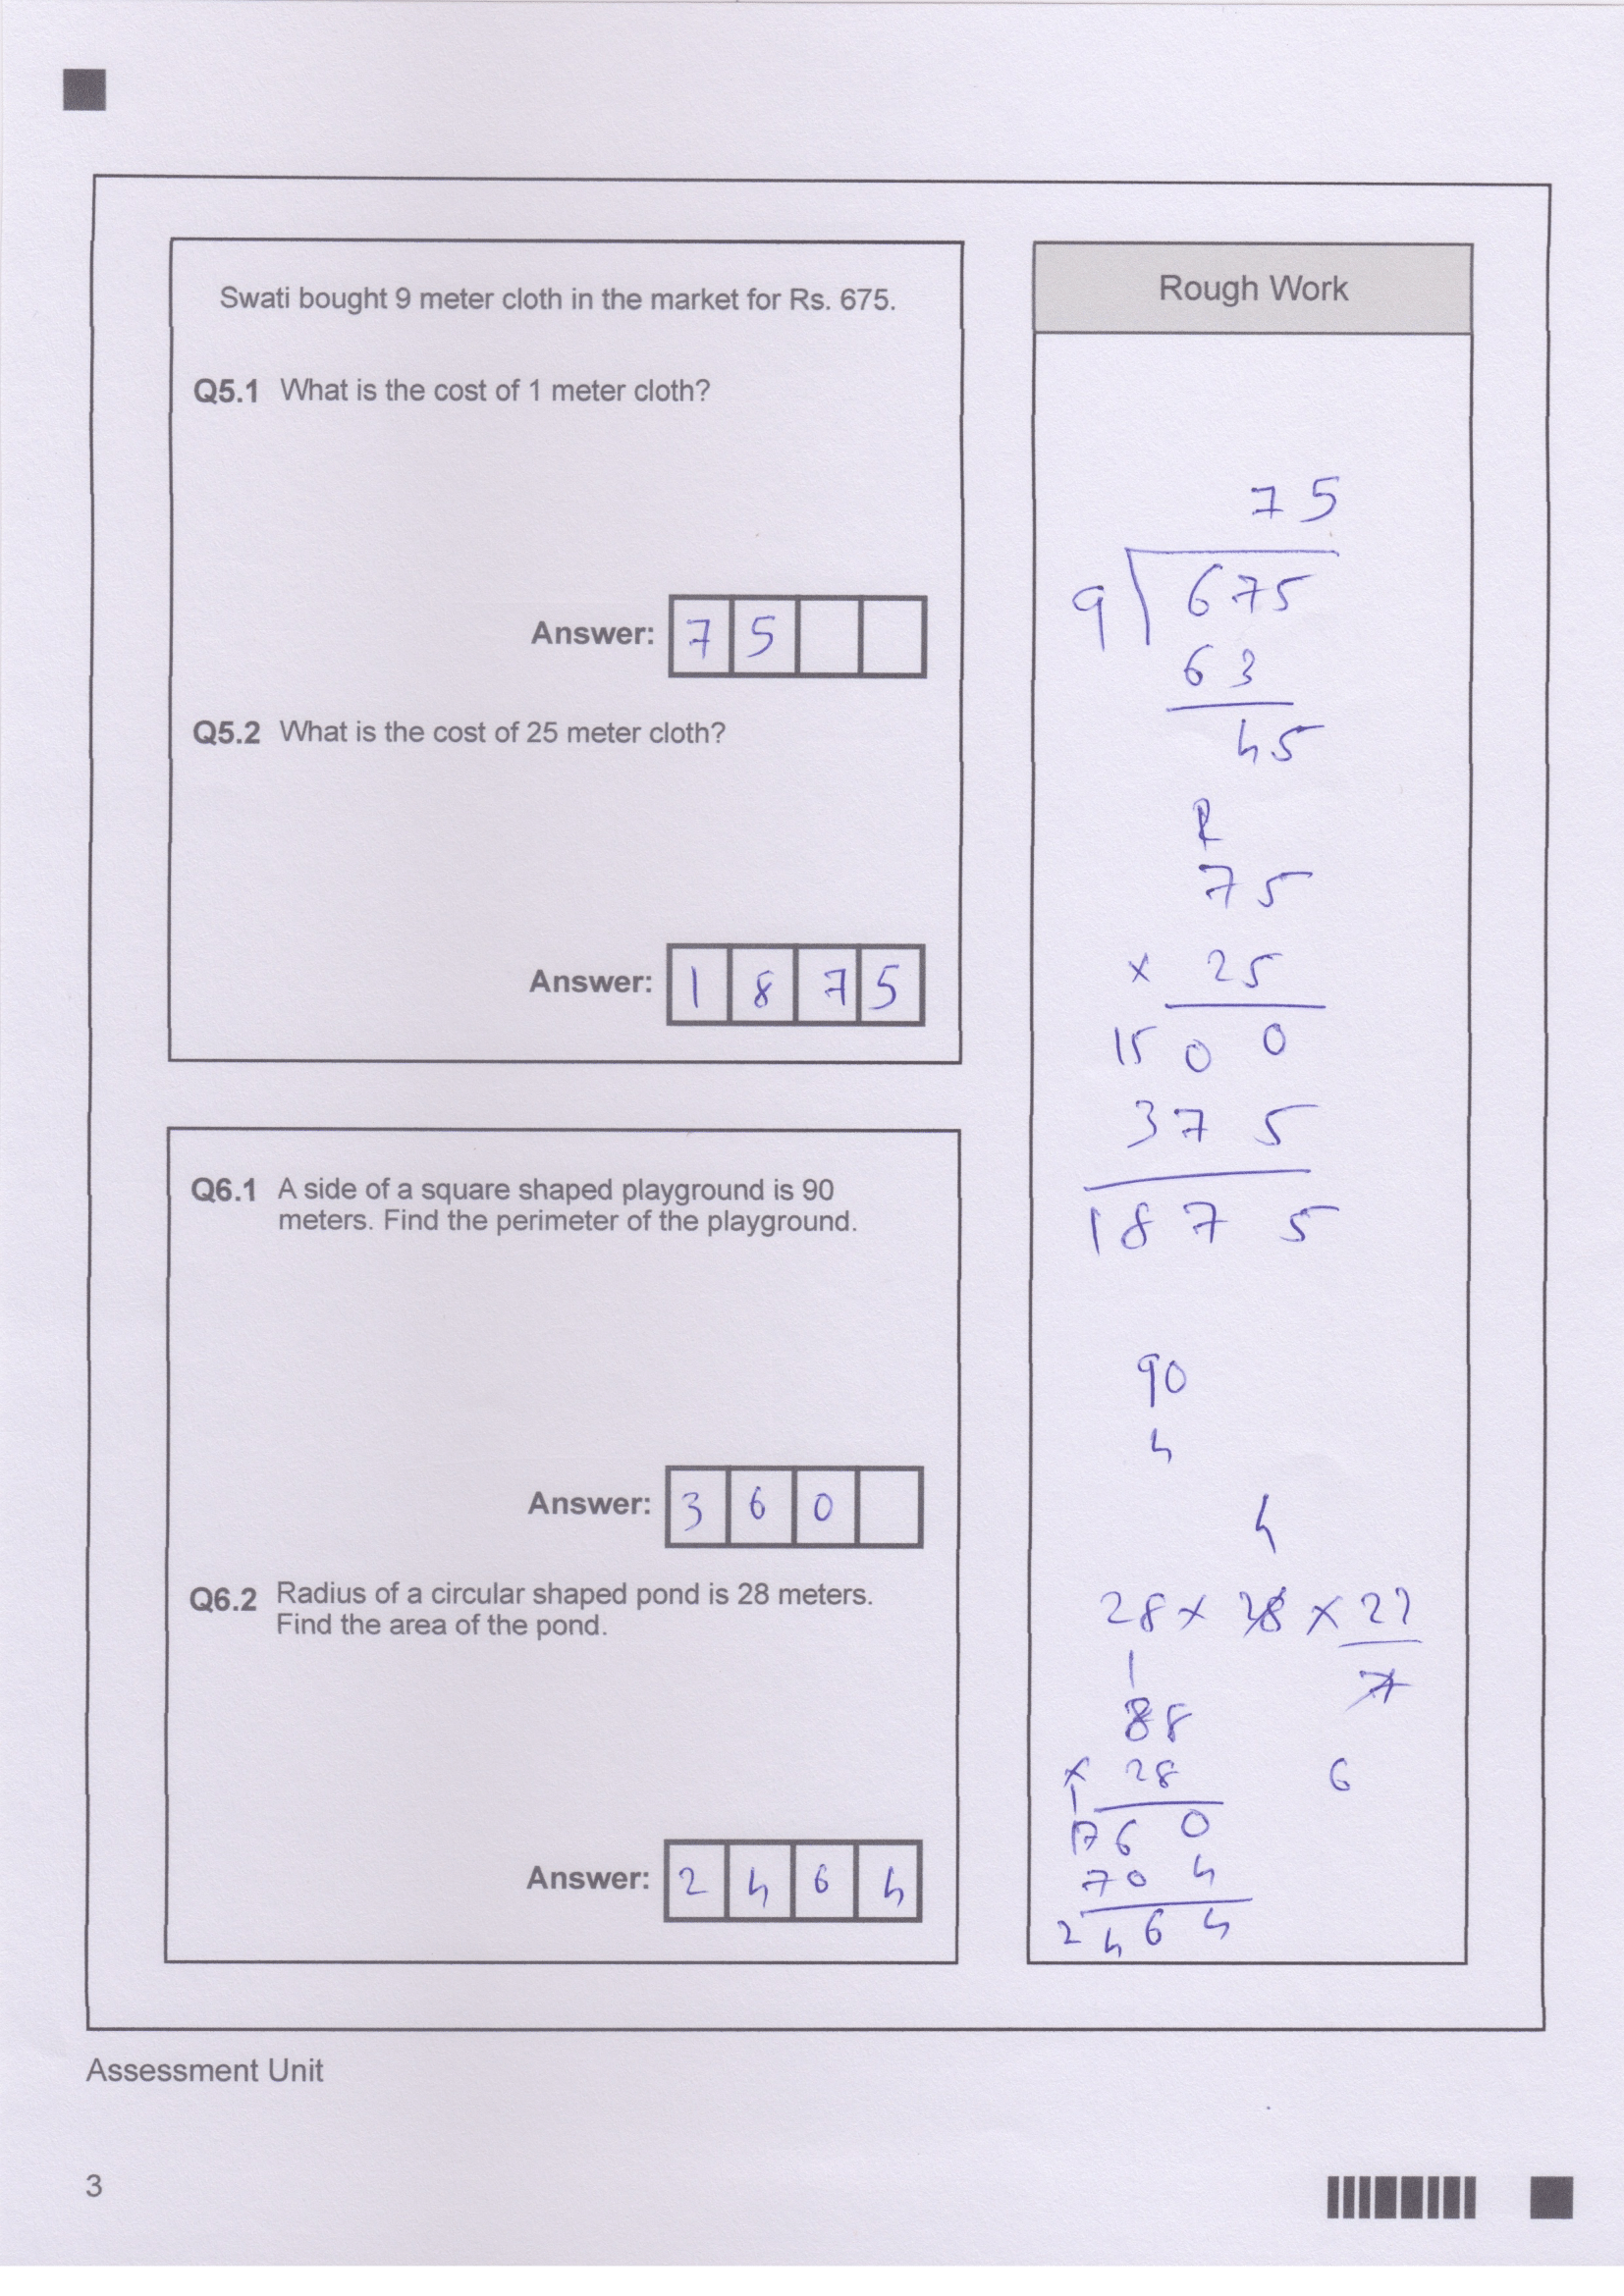 Swati bought 9 meter cloth in the market for Rs. 675.
Q5.1 What is the cost of 1 meter cloth?
Answer: 7 5
Q5.2 What is the cost of 25 meter cloth?
Answer: 1 8 7 5
Q6.1 A side of a square shaped playground is 90
meters. Find the perimeter of the playground.
Answer: 3 6 0
Q6.2 Radius of a circular shaped pond is 28 meters.
Find the area of the pond.
Answer: 2 4 6 4
Rough Work
75
9 675
63
45
75
× 25
1500
375
1875
90
4
4
28 × 28 × 22
7
1
88
× 28
6
1
1760
704
2464
Assessment Unit
3